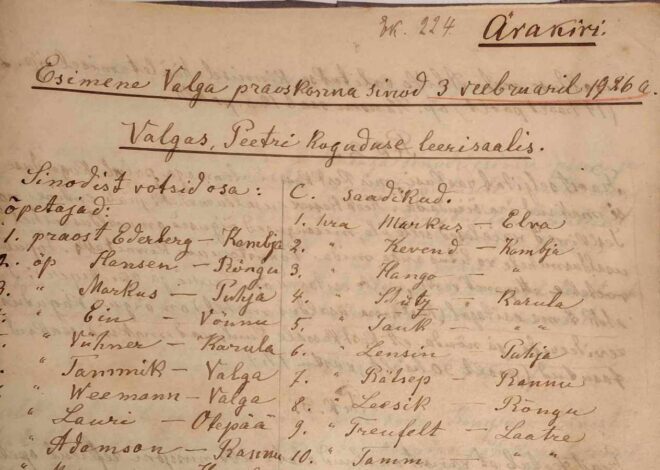 Ek. 224.
Ärakiri.
Esimene Valga praoskonna sinod 3 veebruaril 1926 a.
Valgas, Peetri koguduse leerisaalis.
Sinodist võtsid osa:
õpetajad:
1. praost Ederberg — Kambja
2. õp Hansen — Rõngu
3. " Markus — Puhja
" Ein — Võnnu
" Vühner — Karula
" Tammik — Valga
" Weemann — Valga
" Lauri — Otepää
" Adamson — Rannu
C. saadikud.
1. hra Markus — Elva
2. " Kevend — Kambja
3. " Hango — "
4. " Stütz — Karula
5. " Tauk — "
6. " Lensin — Puhja
7. " Rälsep — Rannu
8. " Laesik — Rõngu
9. " Treufelt — Laatre
10. " Tamm — "